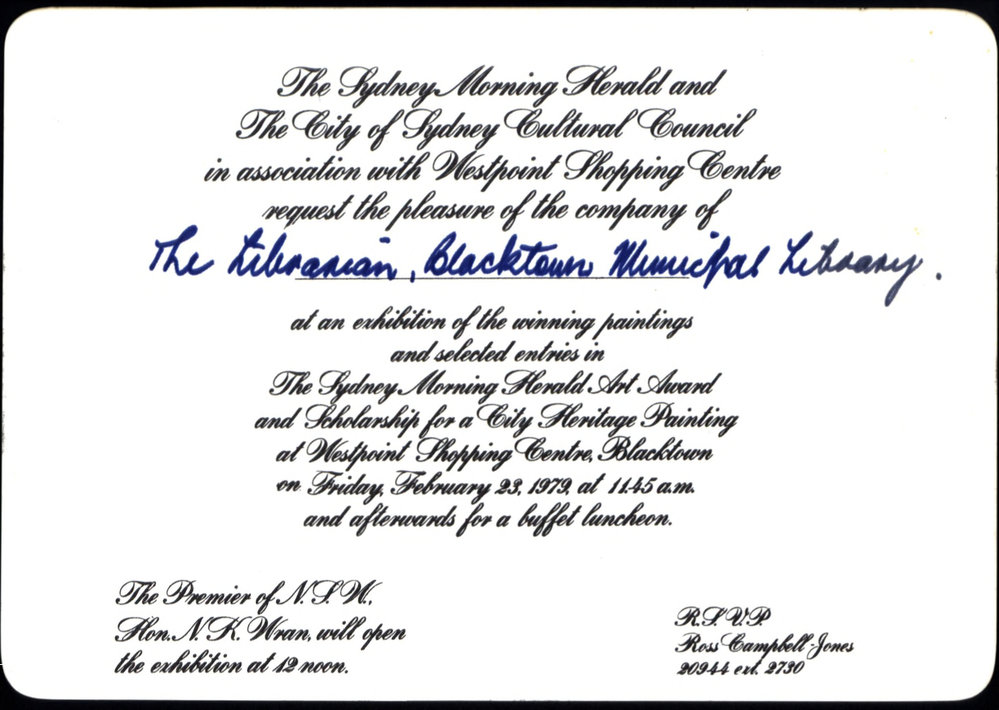 The Sydney Morning Herald and
The City of Sydney Cultural Council
in association with Westpoint Shopping Centre
request the pleasure of the company of
The Librarian, Blacktown Municipal Library.
at an exhibition of the winning paintings
and selected entries in
The Sydney Morning Herald Art Award
and Scholarship for a City Heritage Painting
at Westpoint Shopping Centre, Blacktown
on Friday, February 23, 1979, at 11.45 a.m.
and afterwards for a buffet luncheon.
The Premier of N.S.W.,
Hon. N. K. Wran, will open
the exhibition at 12 noon.
R.S.V.P
Ross Campbell-Jones
20944 ext. 2730